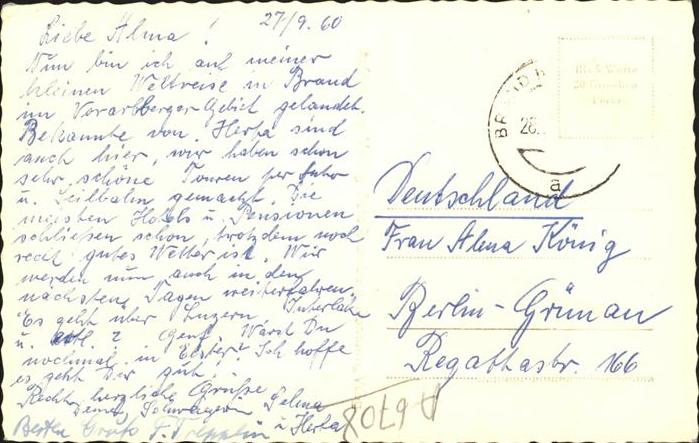 27/9. 60
Liebe Alma!
Nun bin ich auf meiner
kleinen Weltreise in Brand
im Vorarlberger Gebiet gelandet.
Bekannte von Herta sind
auch hier, wir haben schon
sehr schöne Touren per Auto
u. Seilbahn gemacht. Die
meisten Hotels u. Pensionen
schließen schon, trotzdem noch
recht gutes Wetter ist. Wir
werden nun auch in den
nächsten Tagen weiterfahren.
Es geht über Luzern, Interlaken
u. evtl. Genf. Warst Du
nochmal in Elster? Ich hoffe
es geht Dir gut.
Recht herzliche Grüße
Deine Schwägerin Selma
u Herta
Besten Gruß
BRAND
28.
a
Bis 5 Worte
30 Groschen
Porto
Deutschland
Frau Alma König
Berlin-Grünau
Regattastr. 166
A6708